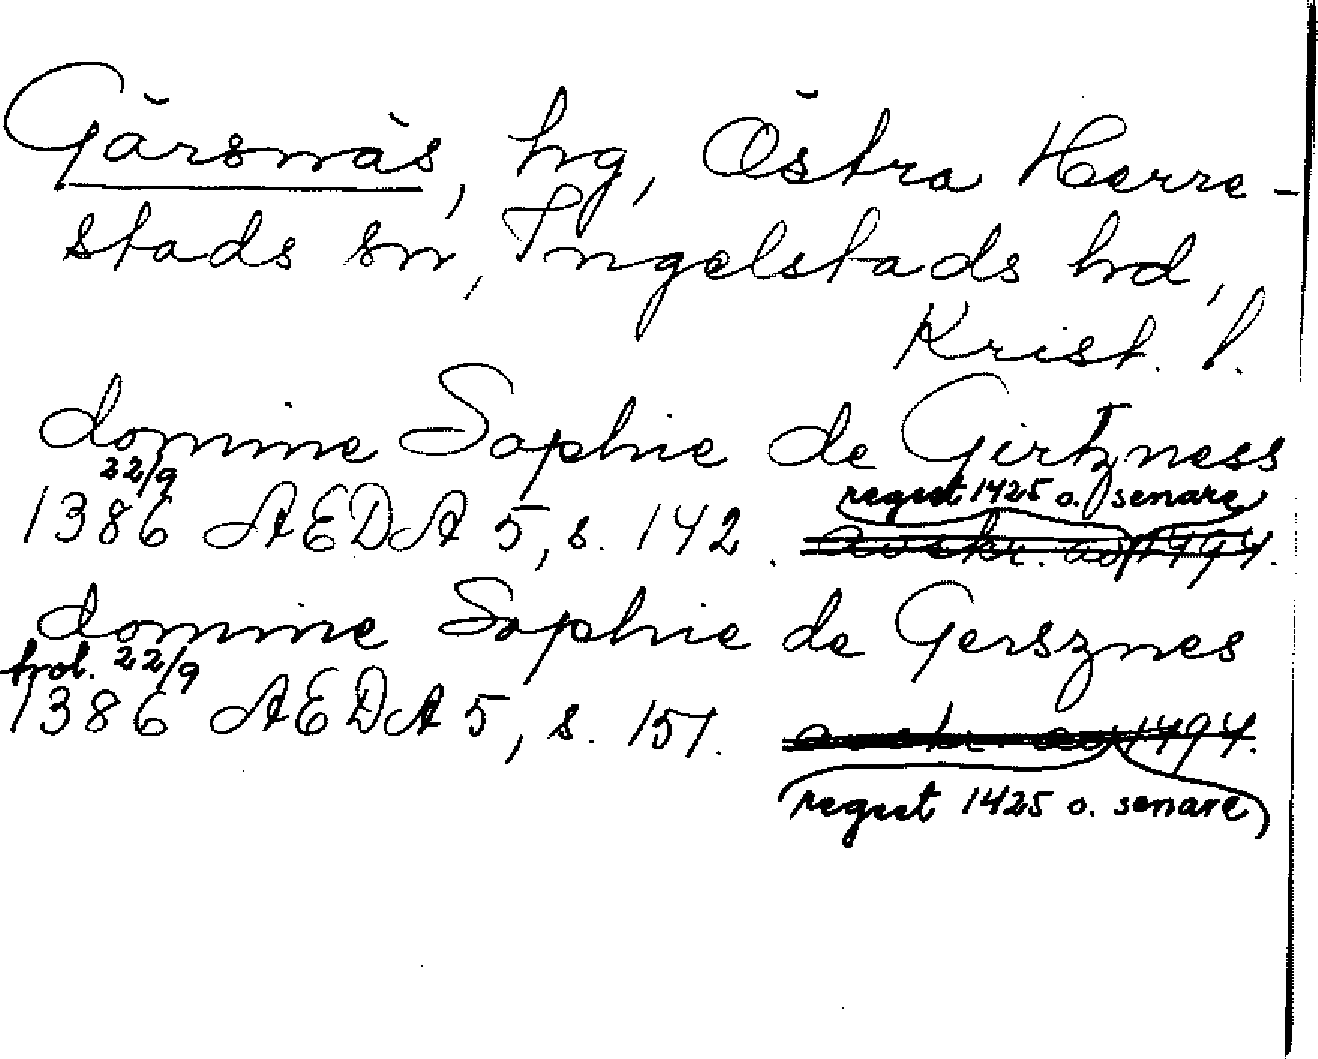 Gärsnäs, hg, Östra Herre-
stads sn, Ingelstads hd,
Krist. l.
domine Sophie de Girtzness
22/9 regest 1425 o. senare
1386 AEDA 5, s. 142. avskr. av 1494.
domine Sophie de Gersznes
trol. 22/9
1386 AEDA 5, s. 151. avskr. av 1494.
regest 1425 o. senare